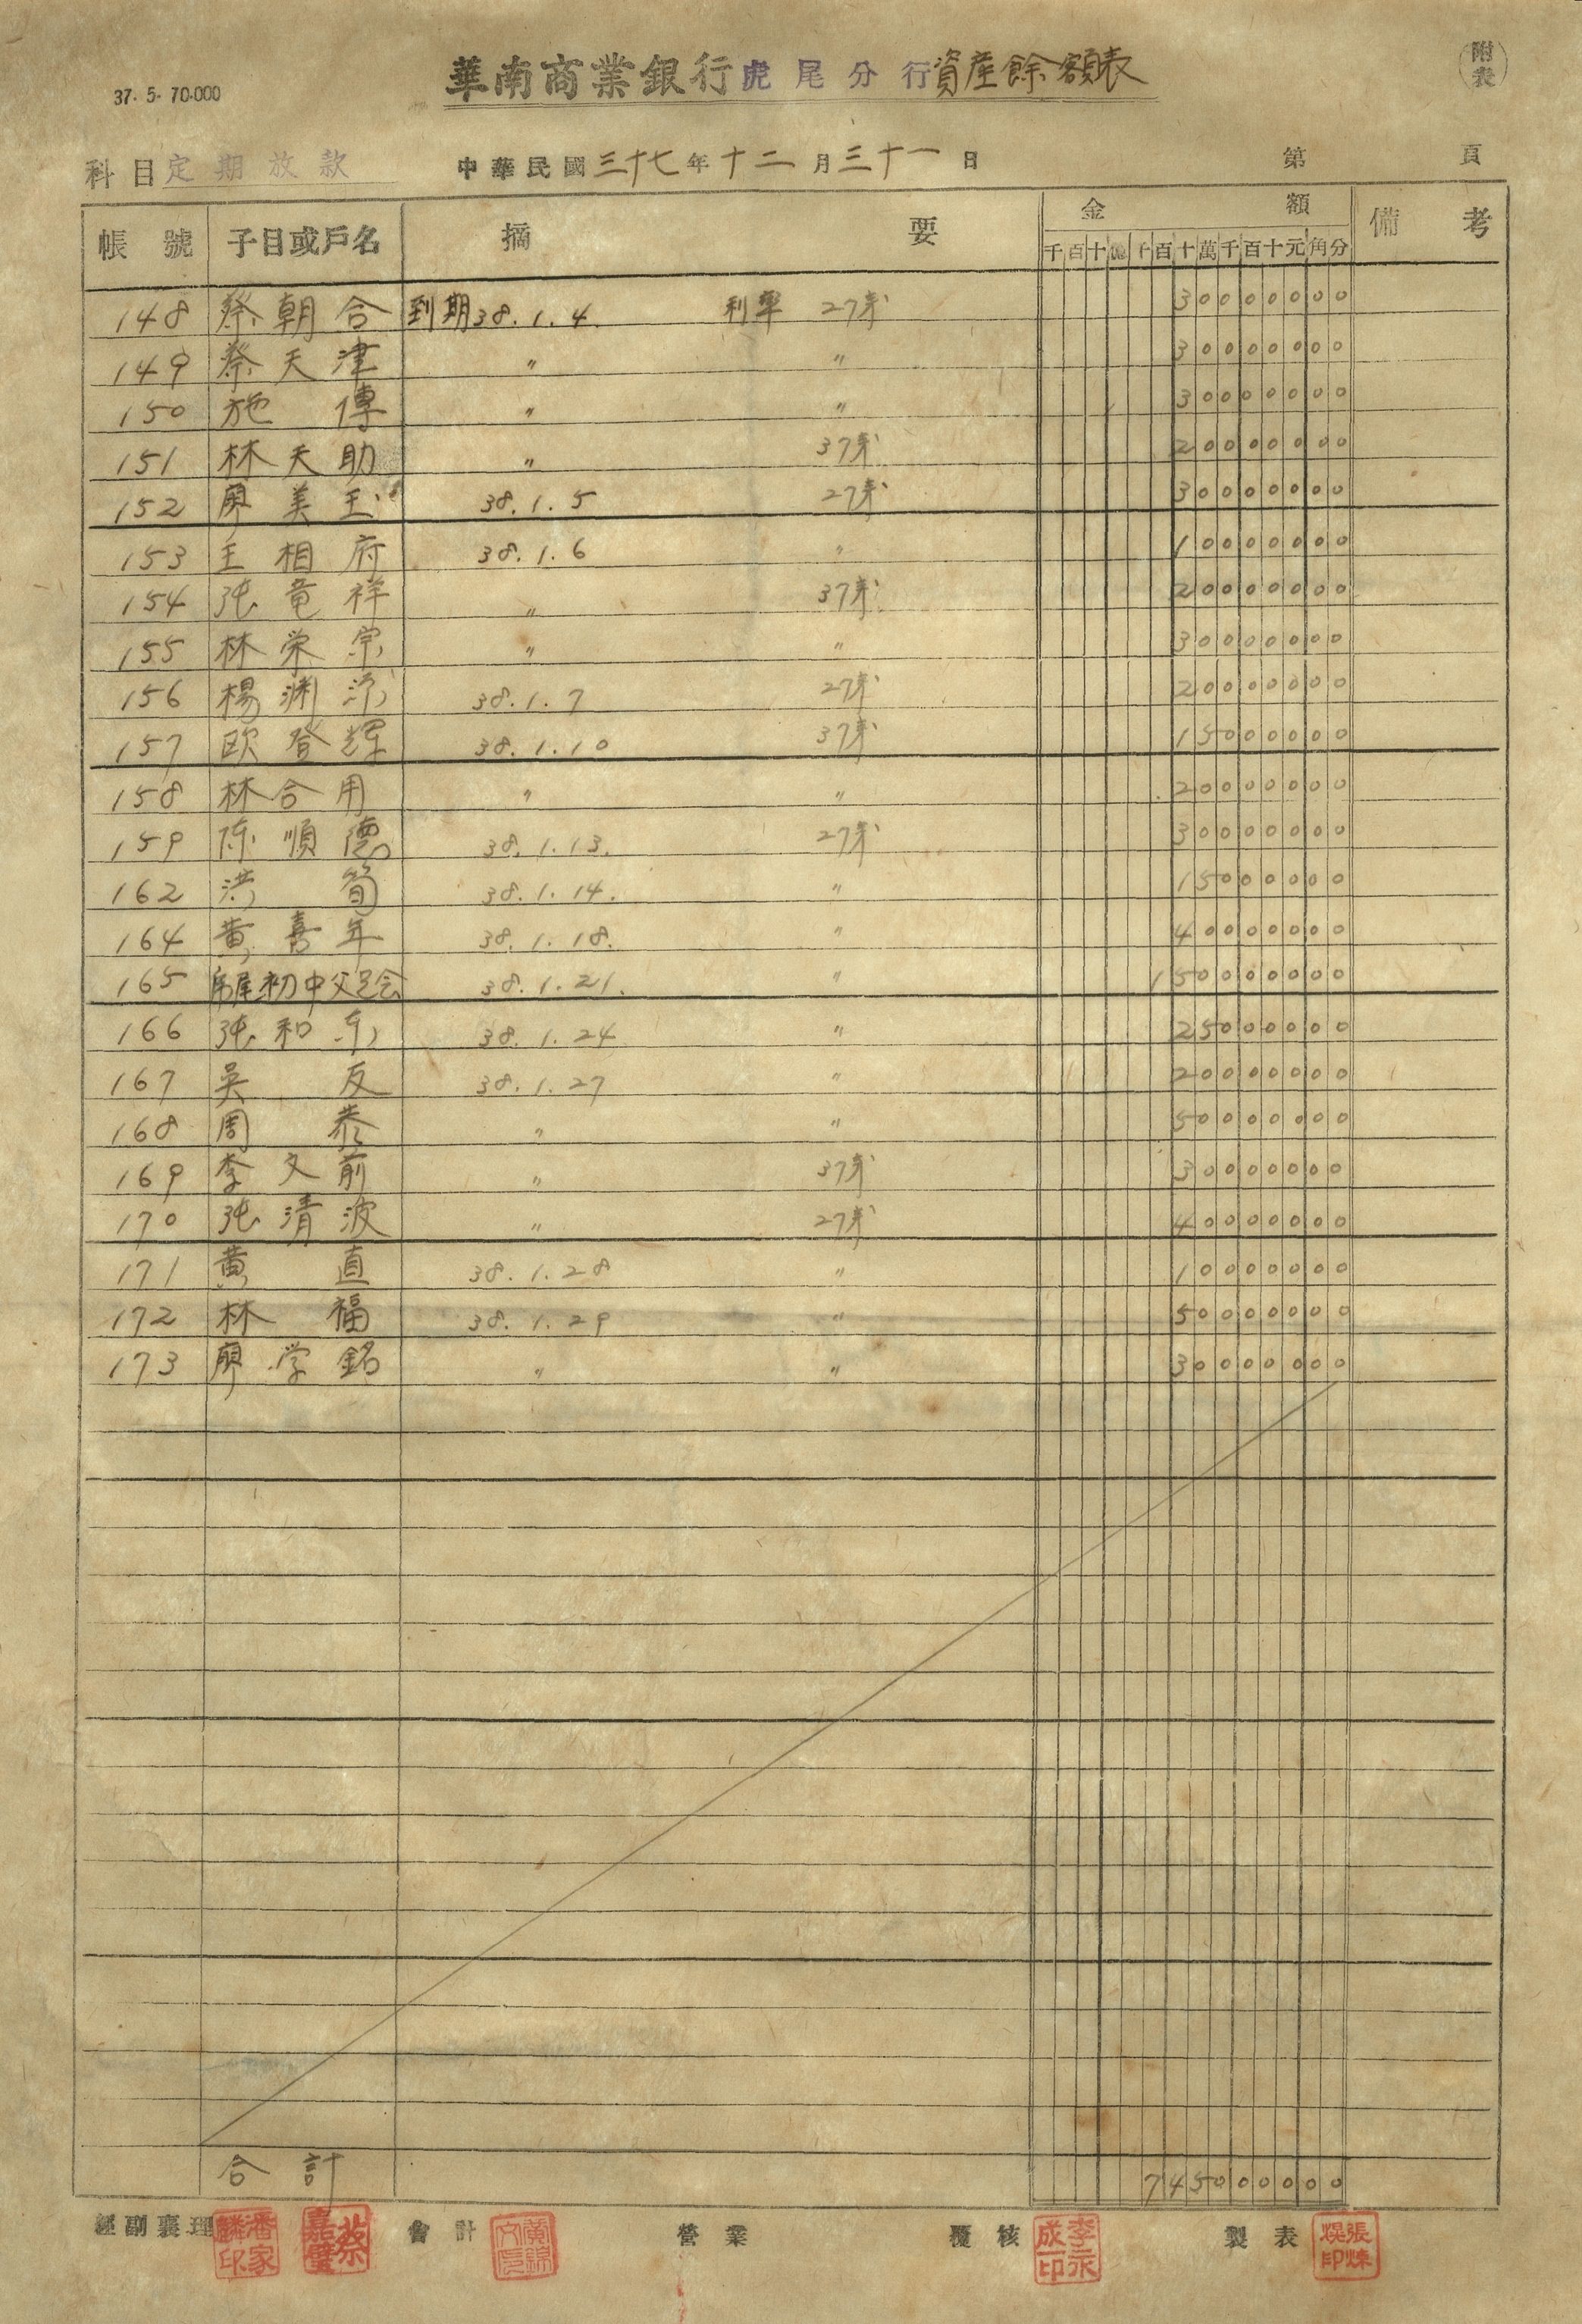 附表
華南商業銀行虎尾分行資產餘額表
37. 5. 70.000
科目定期放款 中華民國三十七年十二月三十一日 第 頁
帳號 子目或戶名 摘要 金額 備考
千百十億千百十萬千百十元角分
148 蔡朝合 到期38.1.4. 利率 27才 30000000
149 蔡天津 〃 〃 30000000
150 施傳 〃 〃 30000000
151 林天助 〃 37才 20000000
152 廖美玉 38.1.5 27才 30000000
153 王相府 38.1.6 〃 10000000
154 張竜祥 〃 37才 20000000
155 林栄宗 〃 〃 30000000
156 楊渊 38.1.7 27才 20000000
157 欧登輝 38.1.10 37才 15000000
158 林合用 〃 〃 20000000
159 陈順德 38.1.13. 27才 30000000
162 洪筍 38.1.14. 〃 15000000
164 黄喜年 38.1.18. 〃 40000000
165 虎尾初中父兄会 38.1.21. 〃 150000000
166 張和 38.1.24 〃 25000000
167 吳反 38.1.27 〃 20000000
168 周恭 〃 〃 50000000
169 李文前 〃 37才 30000000
170 張清波 〃 27才 40000000
171 黄直 38.1.28 〃 10000000
172 林福 38.1.29 〃 50000000
173 廖学銘 〃 〃 30000000
合計 745000000
經副襄理 潘家麟印 蔡嘉璧 會計 黃錦文印 營業 覆核 李永成印 製表 張煉焜印